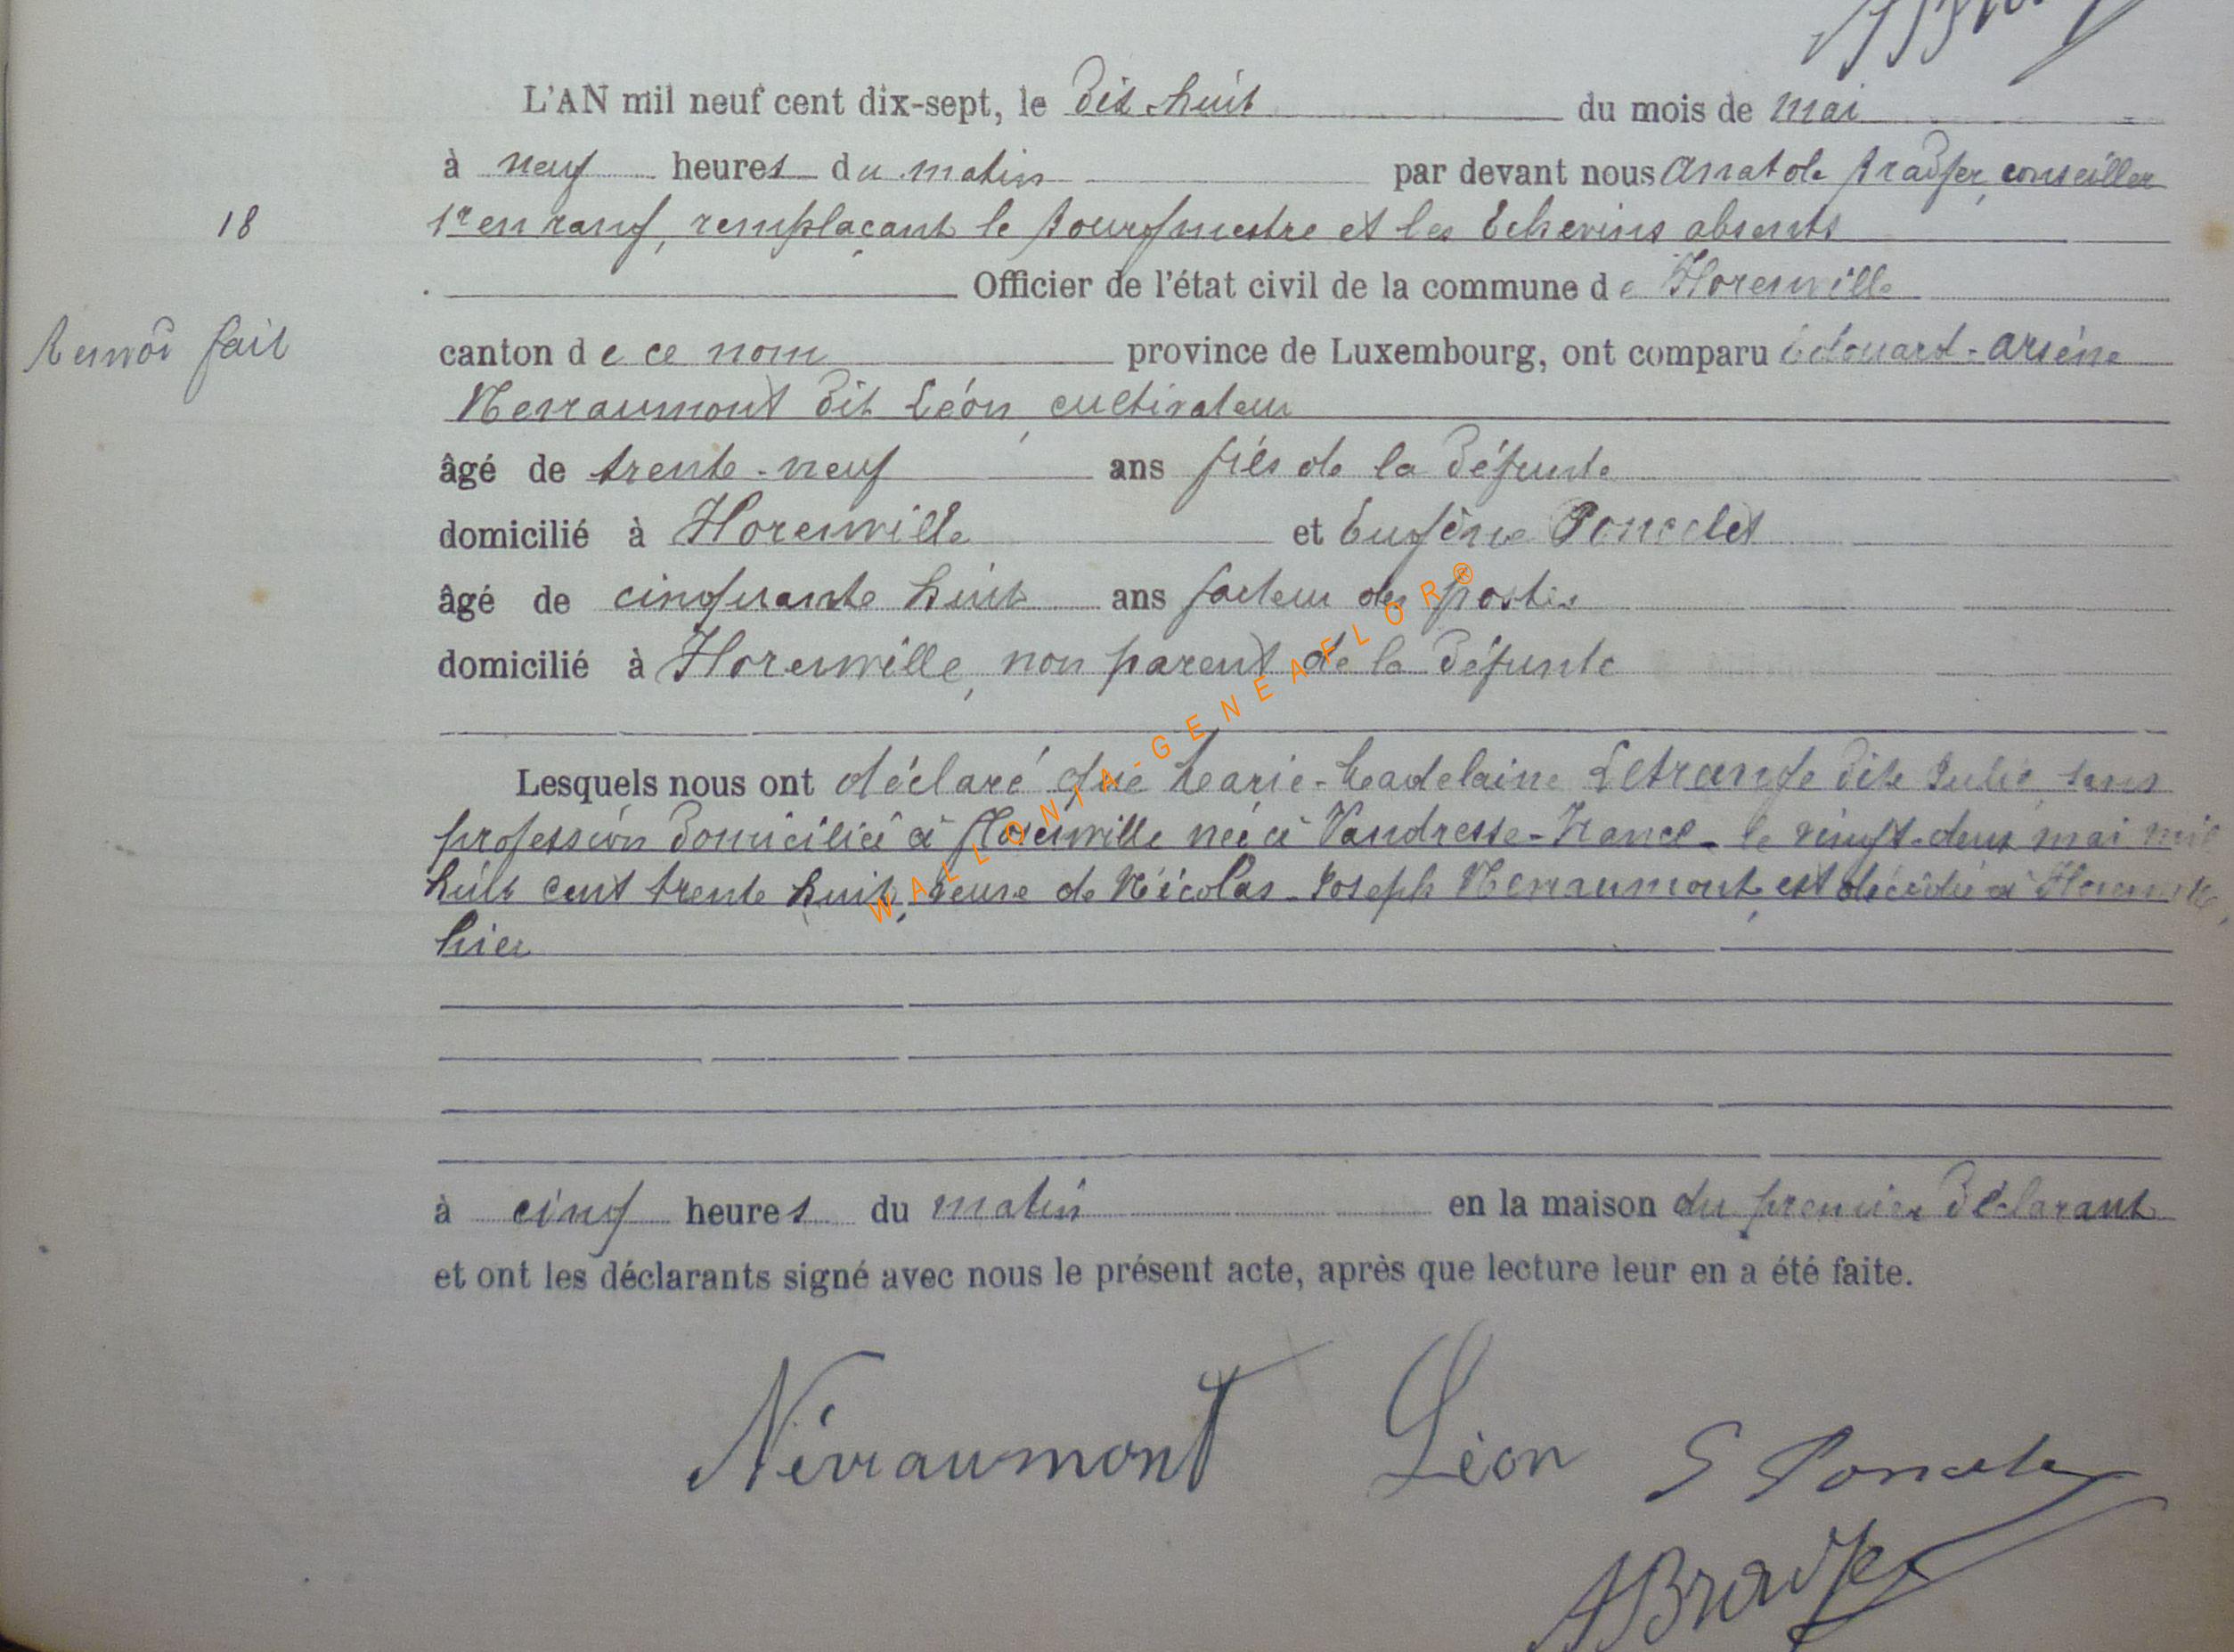 L'AN mil neuf cent dix-sept, le dix huit du mois de mai
à neuf heures du matin par devant nous Anatole Bradfer, conseiller
18
1r en rang, remplaçant le Bourgmestre et les Echevins absents
Officier de l'état civil de la commune de Florenville
Renvoi fait
canton de ce nom province de Luxembourg, ont comparu Edouard-Arsène
Nerraumont dit Léon, cultivateur
âgé de trente-neuf ans fils de la défunte
domicilié à Florenville et Eugène Poncelet
âgé de cinquante huit ans facteur des postes
domicilié à Florenville, non parent de la défunte
Lesquels nous ont déclaré que Marie-Madelaine Letrange dite Julie, sans
profession domiciliée à Florenville née à Vandresse-France - le vingt-deux mai mil
huit cent trente huit, veuve de Nicolas-Joseph Nerraumont, est décédée à Florenville,
hier
à cinq heures du matin en la maison du premier déclarant
et ont les déclarants signé avec nous le présent acte, après que lecture leur en a été faite.
Nérraumont Léon E Poncelet
ABradfer
WALLONIA-GENEAFLOR®